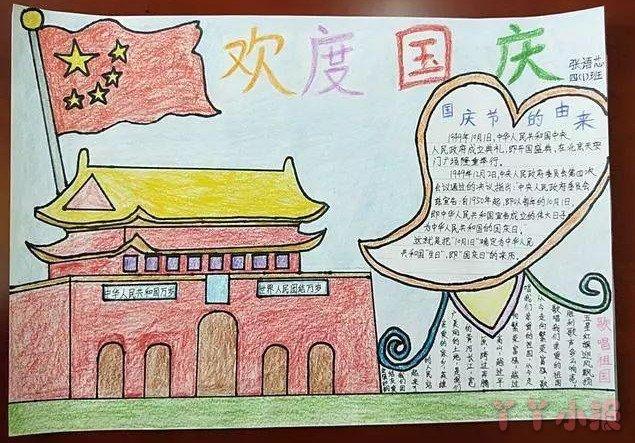 欢度国庆
张语芯
四(1)班
国庆节的由来
1949年10月1日,中华人民共和国中央
人民政府成立典礼,即开国盛典,在北京天安
门广场隆重举行。
1949年12月2日,中央人民政府委员会第四次
会议通过的决议指出:中央人民政府委员会
兹宣告:自1950年起,即以每年的10月1日,
即中华人民共和国宣告成立的伟大日子
为中华人民共和国的国庆日。
这就是把"10月1日"确定为中华人民
共和国"生日",即"国庆日"的来历。
中华人民共和国万岁
世界人民团结万岁
歌唱祖国
五星红旗迎风飘扬
胜利歌声多么响亮
歌唱我们亲爱的祖国
从今走向繁荣富强
丫丫小报